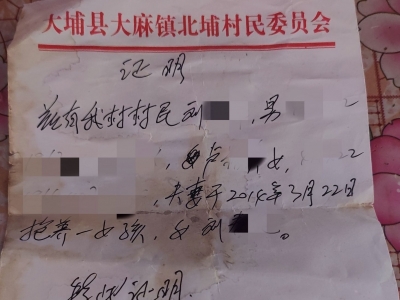 大埔县大麻镇北埔村民委员会
证明
兹有我村村民刘 ,男
女,
夫妻于2014年3月22日
抱养一女孩,女刘 。
证明.